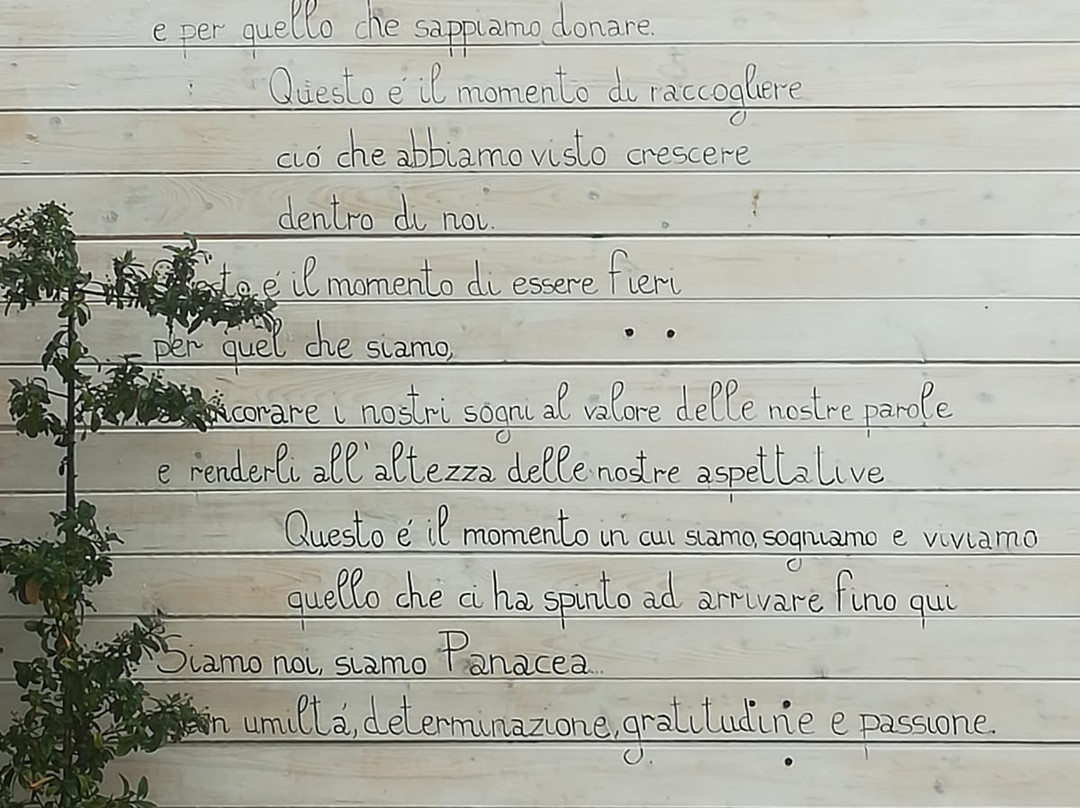 e per quello che sappiamo donare.
Questo é il momento di raccogliere
ció che abbiamo visto crescere
dentro di noi.
é il momento di essere fieri
per quel che siamo,
i nostri sogni al valore delle nostre parole
e renderli all'altezza delle nostre aspettative
Questo é il momento in cui siamo, sogniamo e viviamo
quello che ci ha spinto ad arrivare fino qui
Siamo noi, siamo Panacea...
umiltá, determinazione, gratitudine e passione.